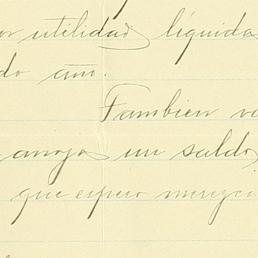 or utilidad líquida
do año.
Tambien va
arroja un saldo
que espero merezca